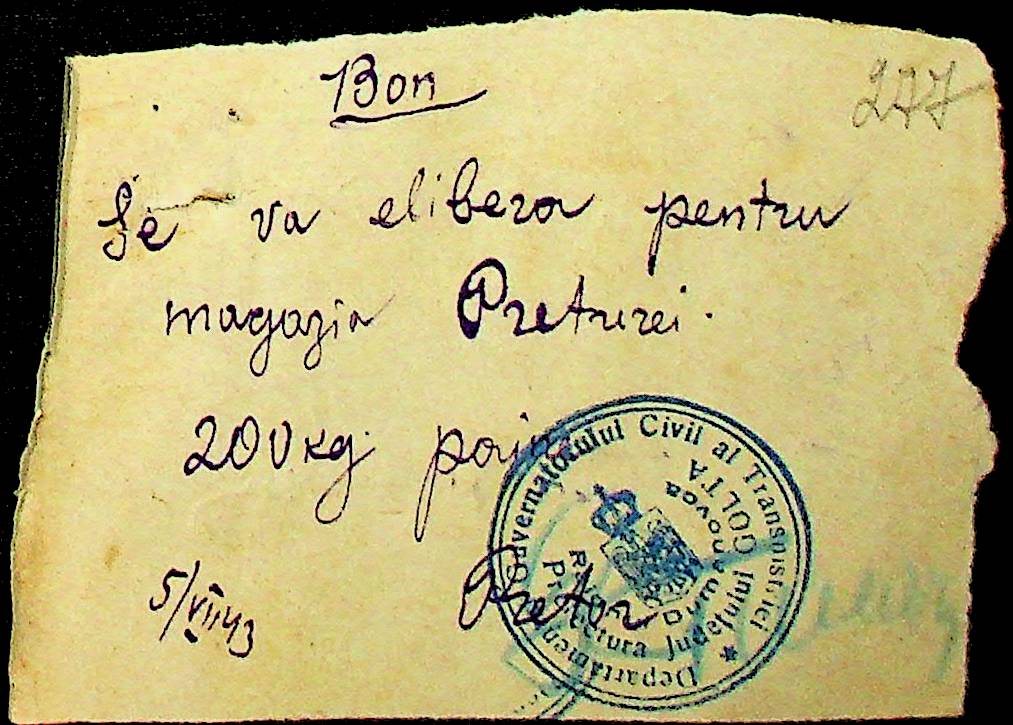 277
Bon
Se va elibera pentru
magazia Preturei.
200 kg paie
5/VII 43
Pretor
Guvernatorul Civil al Transnistriei
Departament
Prefectura Județului GOLTA
Durnovca